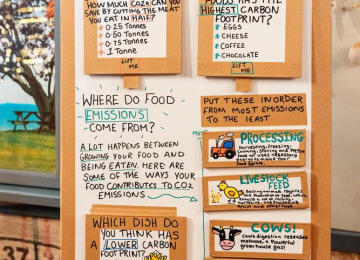 HOW MUCH CO2e CAN YOU
SAVE BY CUTTING THE MEAT
YOU EAT IN HALF?
0-25 Tonnes
0-50 Tonnes
0-75 Tonnes
1 Tonne
LIFT
ME
FOODS HAS THE
HIGHEST CARBON
FOOTPRINT?
EGGS
CHEESE
COFFEE
CHOCOLATE
LIFT
ME
WHERE DO FOOD
EMISSIONS
COME FROM?
A LOT HAPPENS BETWEEN
GROWING YOUR FOOD AND
BEING EATEN. HERE ARE
SOME OF THE WAYS YOUR
FOOD CONTRIBUTES TO CO2
EMISSIONS
PUT THESE IN ORDER
FROM MOST EMISSIONS
TO THE LEAST
PROCESSING
Harvesting, freezing,
LIVESTOCK
FEED
COWS!
Cows digestion releases
methane, a powerful
greenhouse gas!
WHICH DISH DO
YOU THINK HAS
A LOWER CARBON
FOOTPRINT?